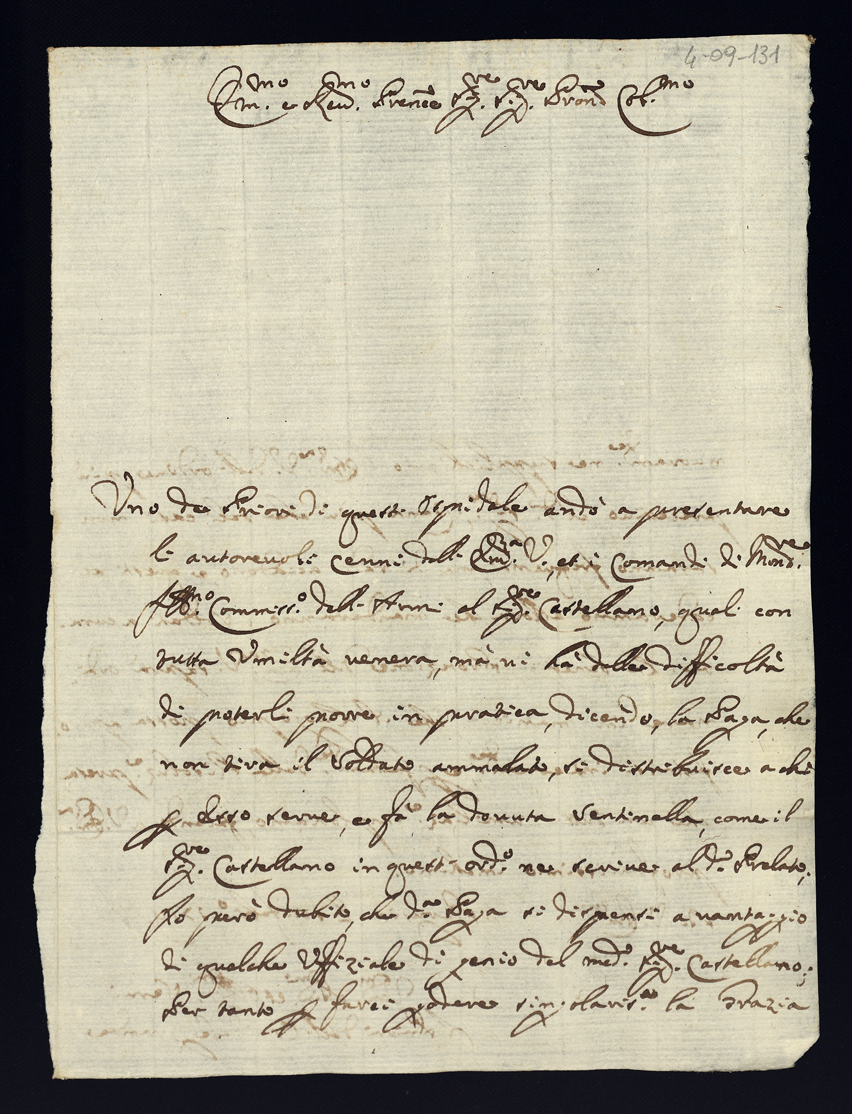 4-09-131
Em.mo e Rev.mo Prencẽ Sig.re Sig.re Pron̄e Col.mo
Uno de Priori di quest'Ospidale andò a presentare
li autorevoli cenni dell'Em.za V., et i Comandi di Mons.re
Ill.mo Commiss.o dell'Armi al Sig.re Castellano, quali con
tutta Umiltà venera, mà vi hà delle difficoltà
di poterli porre in pratica, dicendo, la Paga, che
non tira il Soldato ammalato, si distribuisce a chi
p Esso serve, e fà la dovuta Sentinella, come il
Sig.re Castellano in quest'ord.e ne scrive al d.o Prelato;
Io però dubito, che d.a Paga si dispensi a vantaggio
di qualche Uffiziale di genio del med.o Sig.re Castellano;
Per tanto p farci godere singolaris.a la Grazia